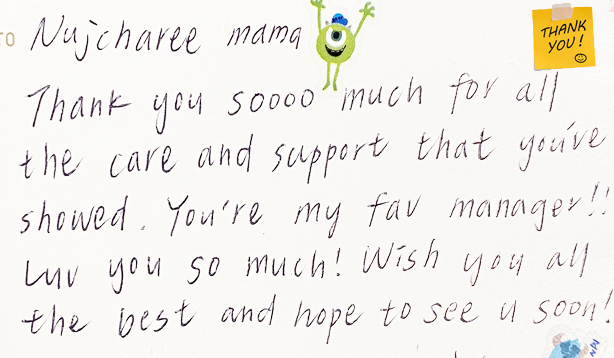 TO Nujcharee mama
THANK
YOU!
Thank you soooo much for all
the care and support that you've
showed. You're my fav manager!!
Luv you so much! Wish you all
the best and hope to see u soon!